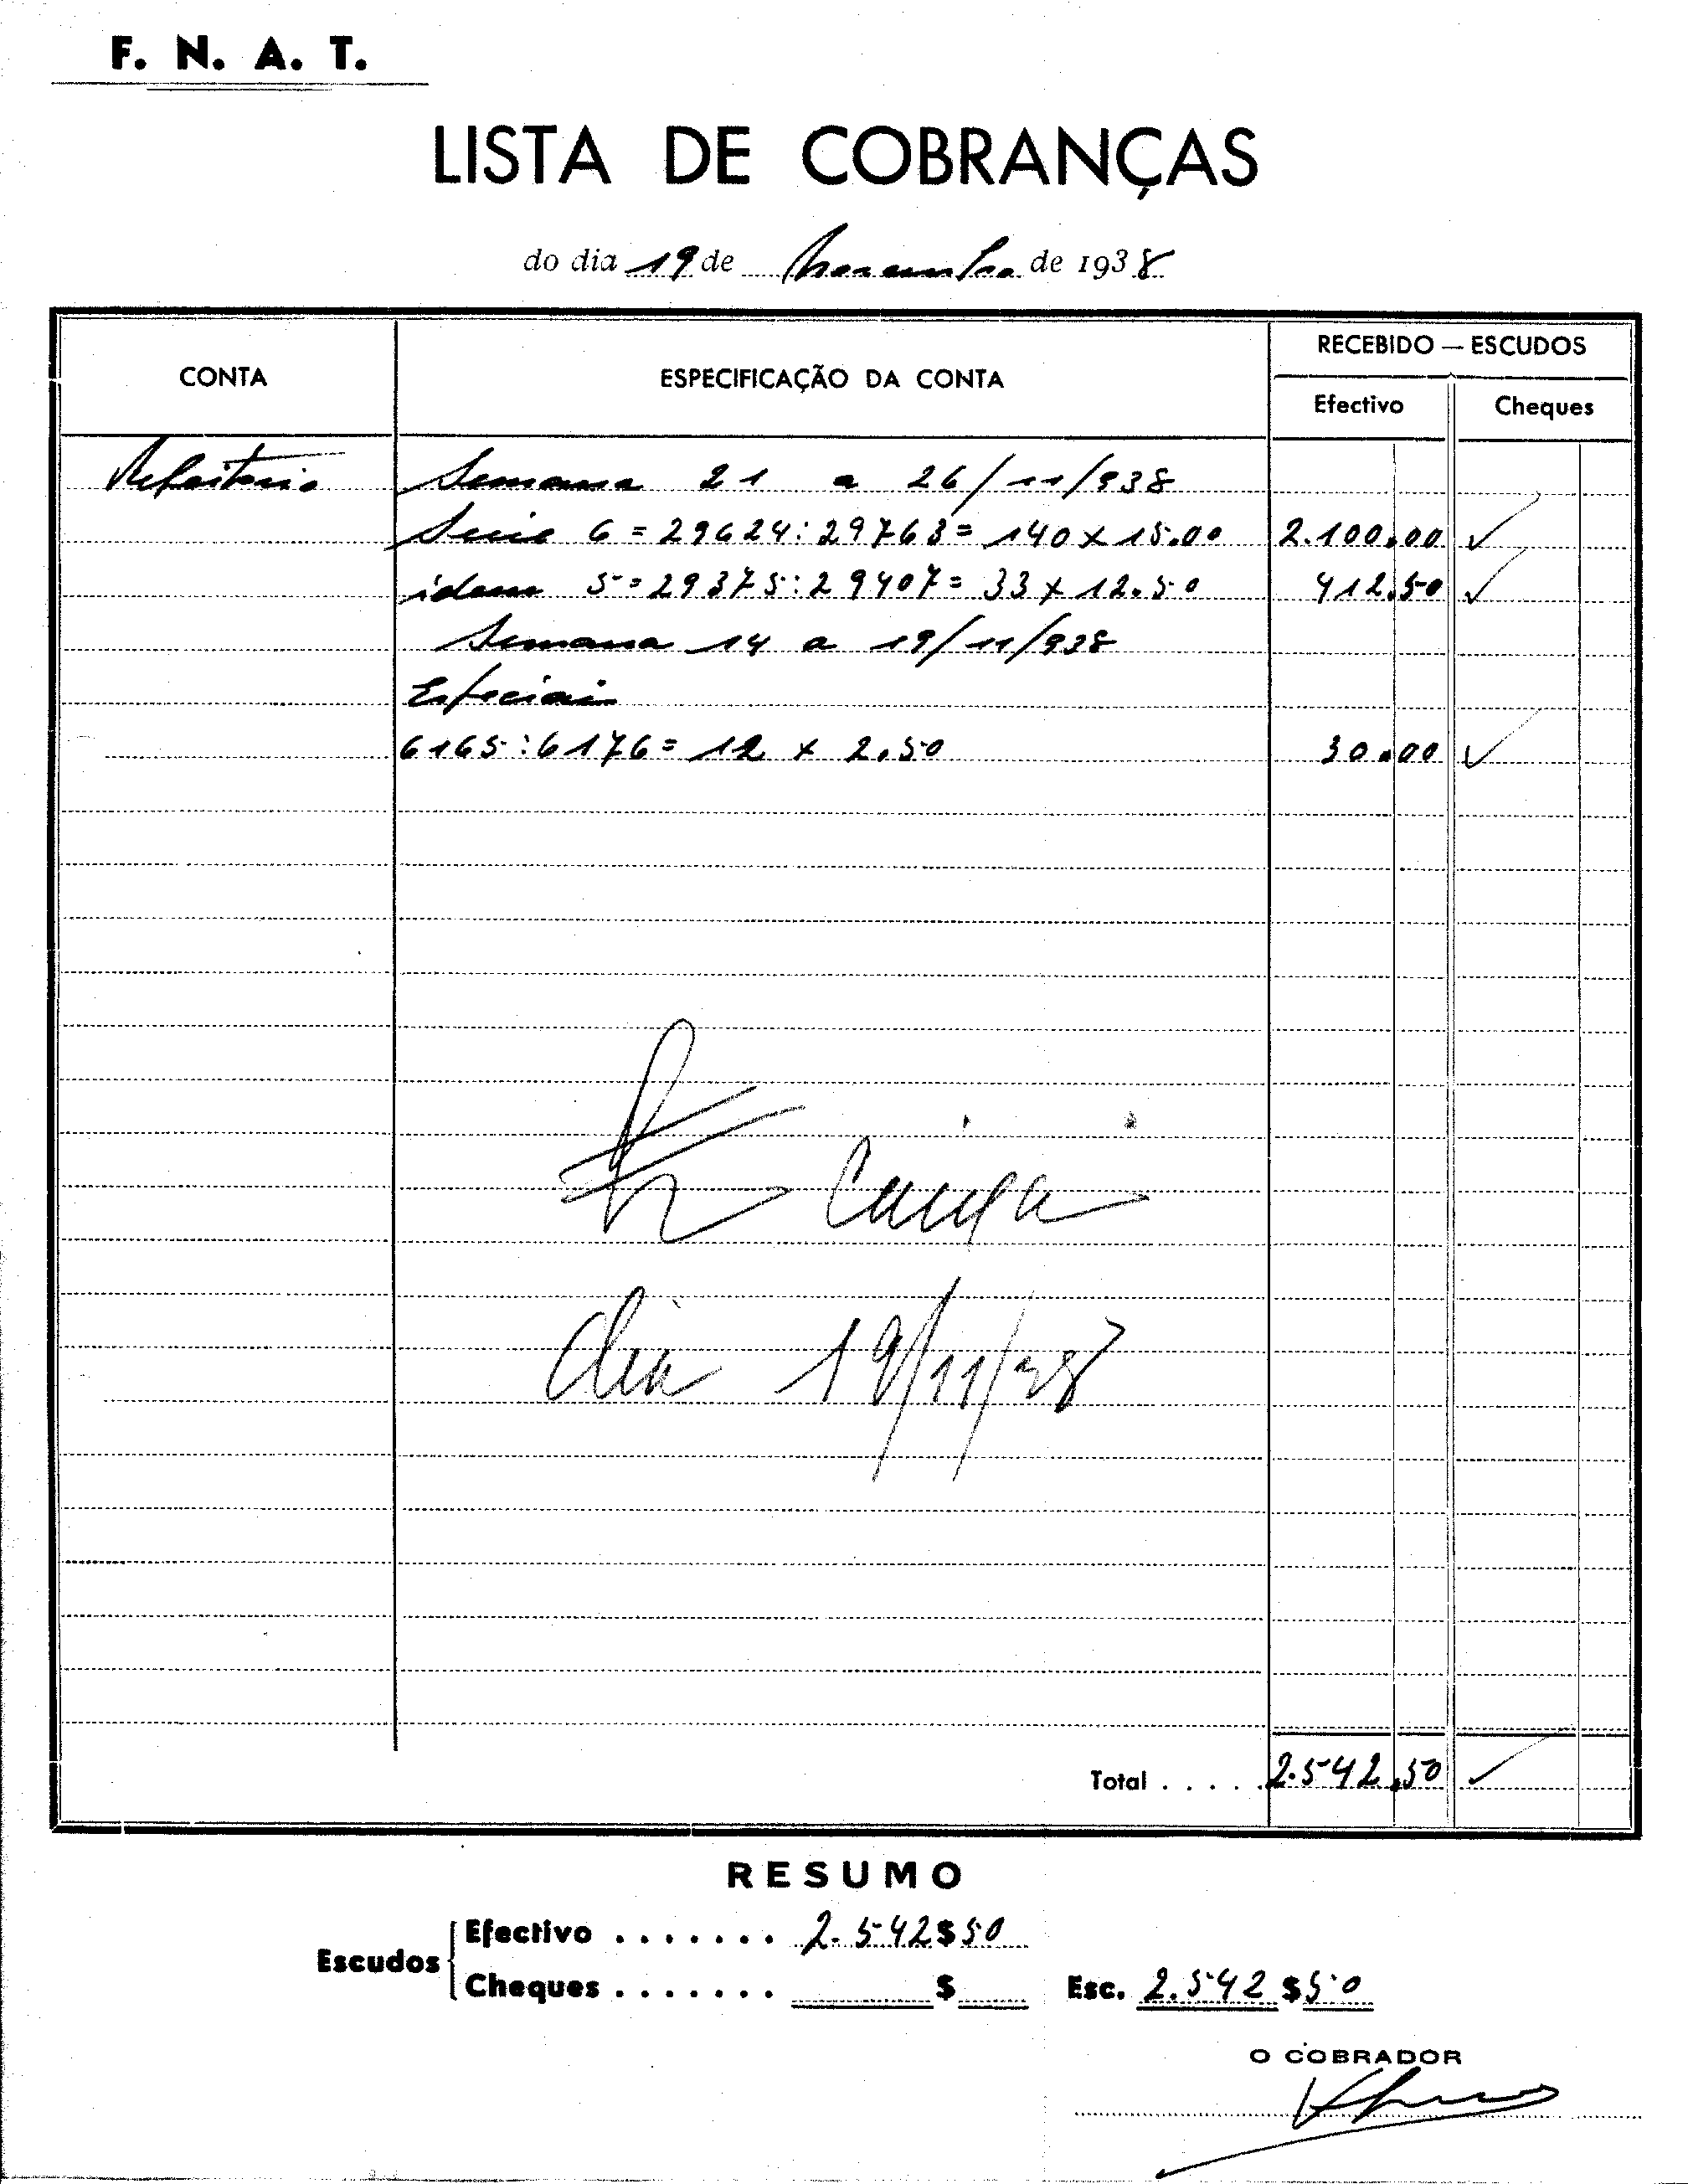 F. N. A. T.
LISTA DE COBRANÇAS
do dia 19 de Novembro de 1938
CONTA
ESPECIFICAÇÃO DA CONTA
RECEBIDO — ESCUDOS
Efectivo
Cheques
Refeitorio Semana 21 a 26/11/938
Serie 6 = 29624:29763 = 140 x 15.00 2.100.00
idem 5 = 29375:29407 = 33 x 12.50 412.50
Semana 14 a 19/11/938
Especiais
6165:6176 = 12 x 2.50 30.00
Caixa
dia 19/11/38
Total . . . . . 2.542.50
RESUMO
Escudos
Efectivo . . . . . . . 2.542$50
Cheques . . . . . . . $
Esc. 2.542$50
O COBRADOR